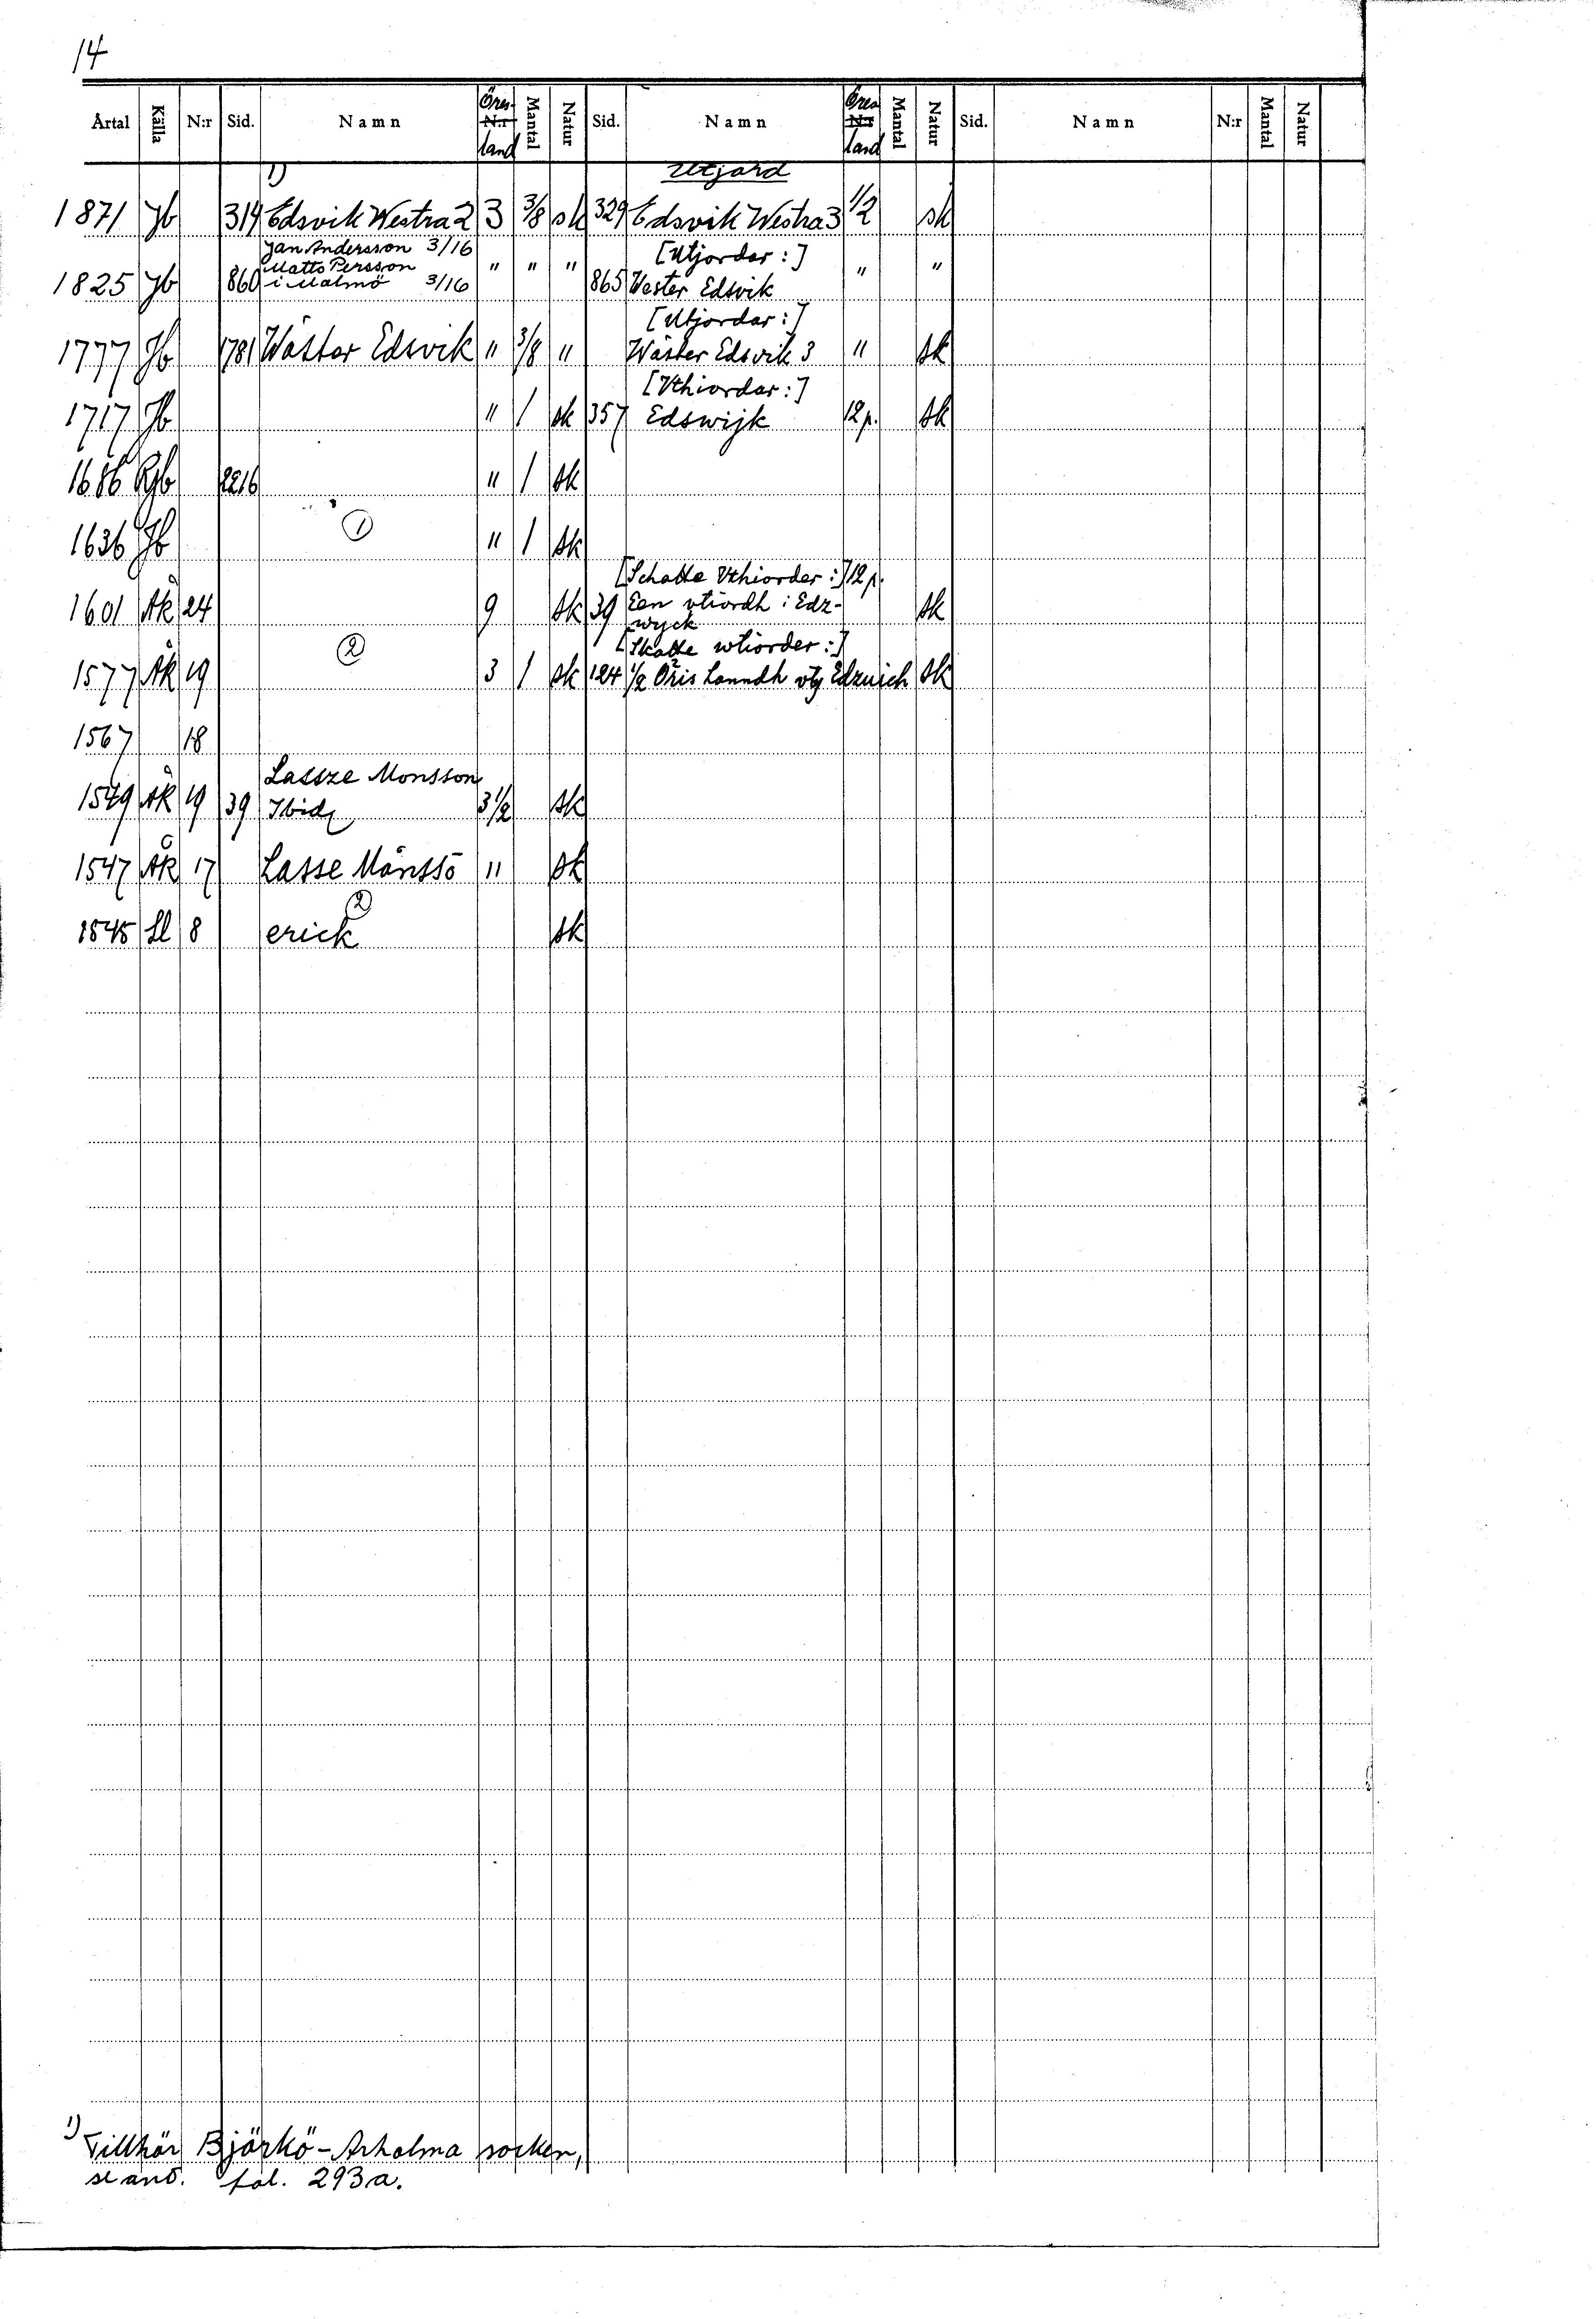 14
Årtal Källa N:r Sid. Namn Öres- N:r land Mantal Natur Sid. Namn Öres N:r land Mantal Natur Sid. Namn N:r Mantal Natur
1) Utjord
1871 Jb 319 Edsvik Westra 2 3 3/8 sk 329 Edsvik Westra 3 1/2 sk
Jan Andersson 3/16 [Utjordar:]
Matts Persson
1825 Jb 860 i Malmö 3/16 " " " 865 Wester Edsvik " "
[Utjordar:]
1777 Jb 1781 Wäster Edsvik " 3/8 " Wäster Edsvik 3 " sk
[Vthiordar:]
1717 Jb " 1 sk 357 Edswijk 12 p. sk
1686 Rjb 2216 " 1 sk
1636 Jb 1 " 1 sk
[Schatte Vthiorder:] 12 p.
1601 Åk 24 9 sk 39 Een vtiordh i Edz- sk
wyck
2 [Skatte wtiorder:]
1577 Åk 19 3 1 sk 124 1/2 Öris Lanndh vtj Edzuich sk
1567 18
Lassze Monsson
1549 Åk 19 39 Ibid 3 1/2 sk
1547 Åk 17 Lasse Månssō " sk
2
1545 Sl 8 erick sk
1) Tillhör Björkö-Arholma socken,
se and. fol. 293a.